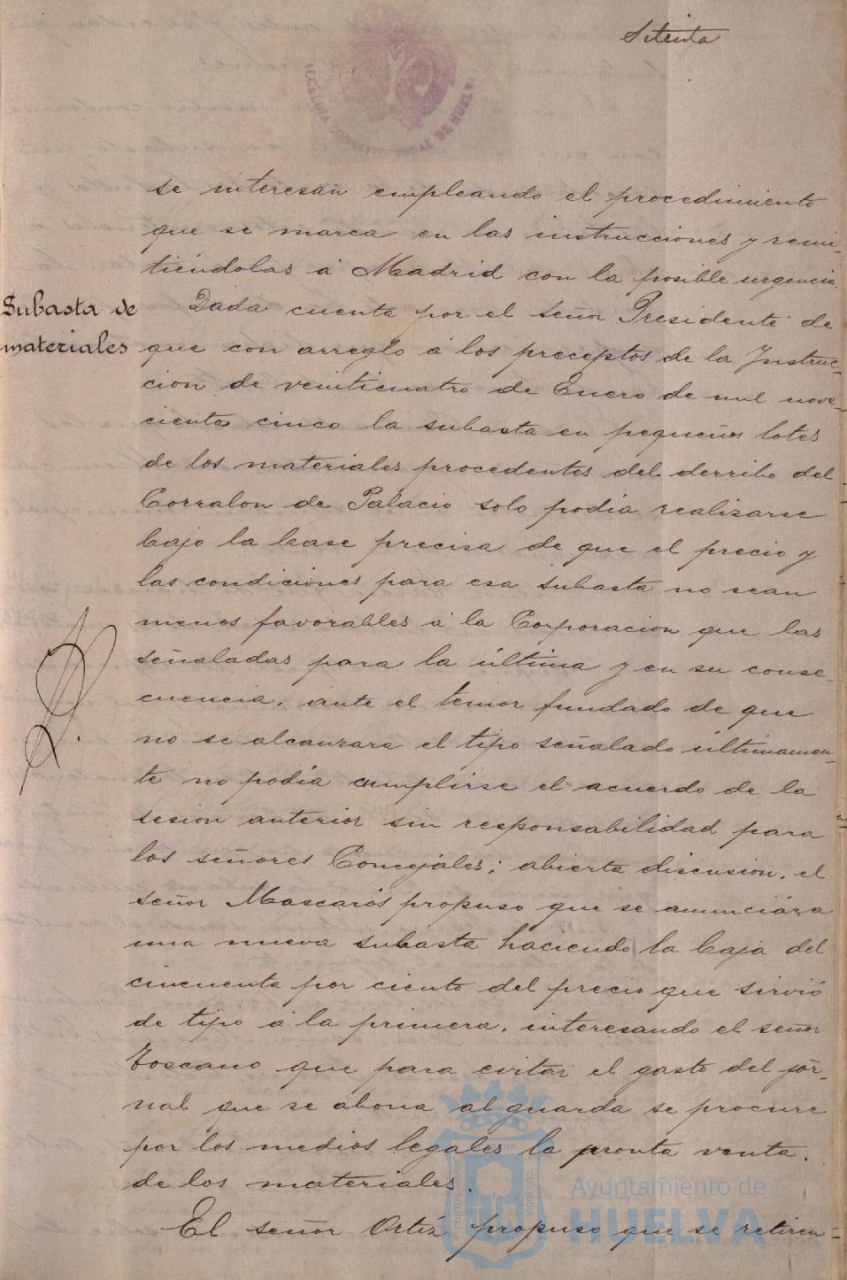 Setenta
se interesan empleando el procedimiento
que se marca en las instrucciones y remi-
tiéndolas á Madrid con la posible urgencia.
Subasta de
materiales
Dada cuenta por el señor Presidente de
que con arreglo á los preceptos de la Instruc-
cion de veinticuatro de Enero de mil nove-
cientos cinco la subasta en pequeños lotes
de los materiales procedentes del derribo del
Corralon de Palacio solo podia realizarse
bajo la base precisa de que el precio y
las condiciones para esa subasta no sean
menos favorables á la Corporacion que las
señaladas para la última y en su conse-
cuencia, ante el temor fundado de que
no se alcanzara el tipo señalado últimamen-
te no podia cumplirse el acuerdo de la
sesion anterior sin responsabilidad para
los señores Concejales; abierta discusion, el
señor Mascarós propuso que se anunciára
una nueva subasta haciendo la baja del
cincuenta por ciento del precio que sirvió
de tipo á la primera, interesando el señor
Toscano que para evitar el gasto del jor-
nal que se abona al guarda se procure
por los medios legales la pronta venta
de los materiales.
El señor Ortiz propuso que se retiren-
Ayuntamiento de
HUELVA